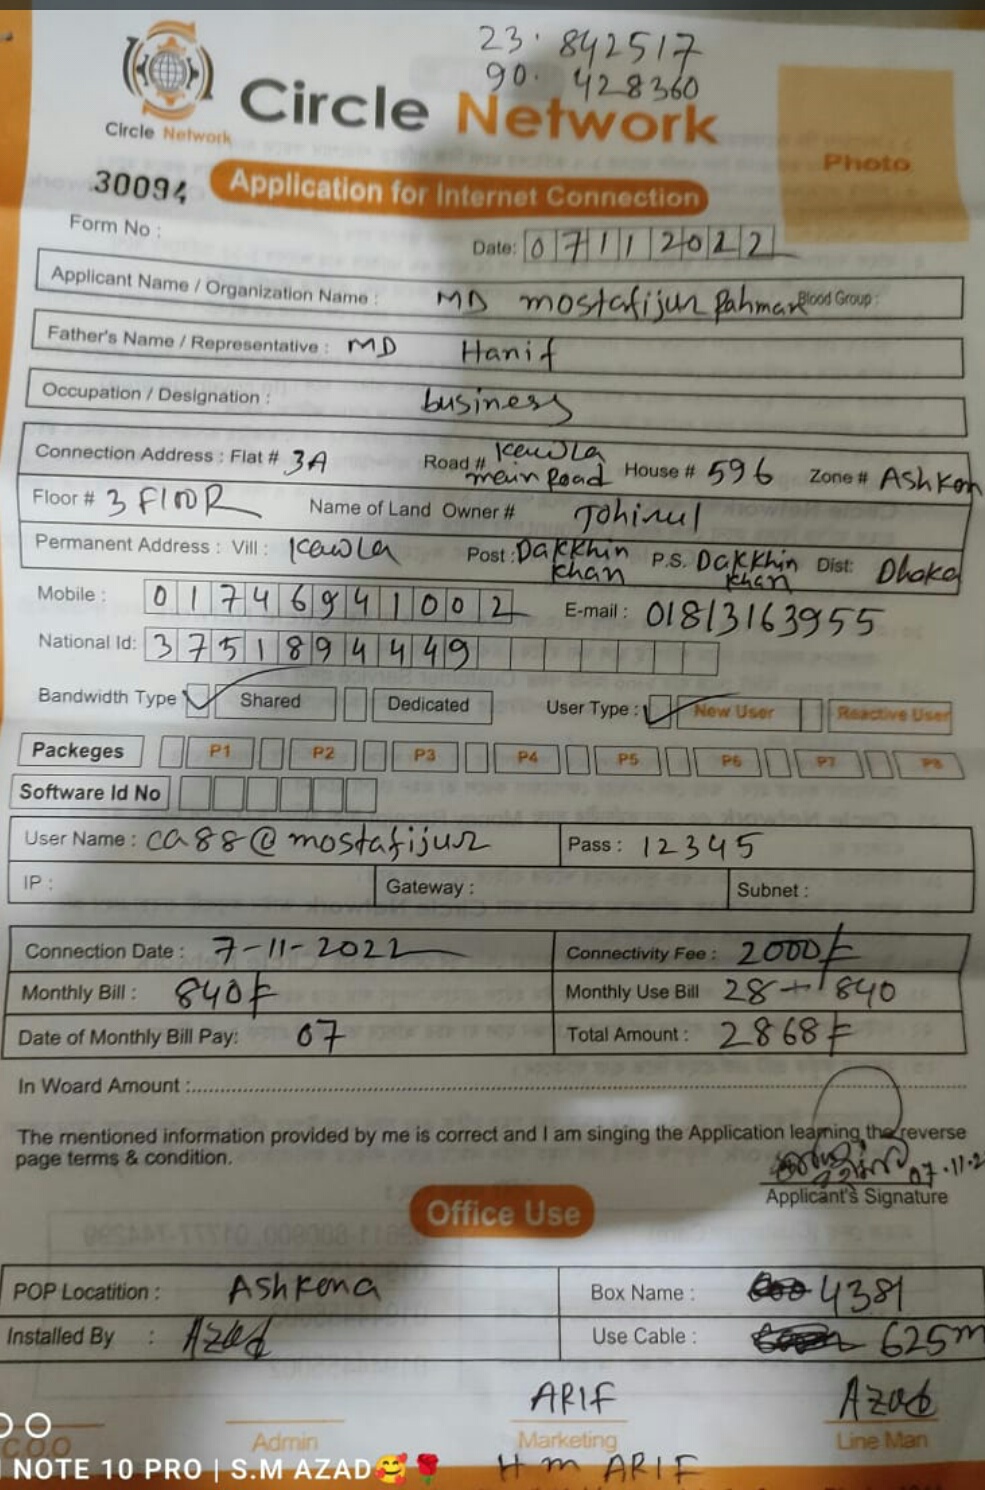 23. 842517
90. 428360
Circle Network
Circle Network
Photo
30094
Application for Internet Connection
Form No :
Date: 07112022
Applicant Name / Organization Name : MD mostafijur Rahman Blood Group :
Father's Name / Representative : MD Hanif
Occupation / Designation : business
Connection Address : Flat # 3A Road # kawla main Road House # 596 Zone # Ashkon
Floor # 3 FlooR Name of Land Owner # Johirul
Permanent Address : Vill : kawla Post : Dakkhin khan P.S. Dakkhin khan Dist: Dhaka
Mobile : 01746941002 E-mail : 01813163955
National Id: 3751894449
Bandwidth Type Shared Dedicated User Type : New User Reactive User
Packeges P1 P2 P3 P4 P5 P6 P7 P8
Software Id No
User Name : ca88@mostafijur Pass : 12345
IP : Gateway : Subnet :
Connection Date : 7-11-2022 Connectivity Fee : 2000/=
Monthly Bill : 840/= Monthly Use Bill 28+840
Date of Monthly Bill Pay: 07 Total Amount : 2868/=
In Woard Amount :
The mentioned information provided by me is correct and I am singing the Application learning the reverse
page terms & condition.
07.11.2
Applicant's Signature
Office Use
POP Locatition : Ashkona Box Name : 4381
Installed By : Azad Use Cable : 625m
ARIF Azad
C.O.O Admin Marketing Line Man
NOTE 10 PRO | S.M AZAD🥰🌹
H m ARIF